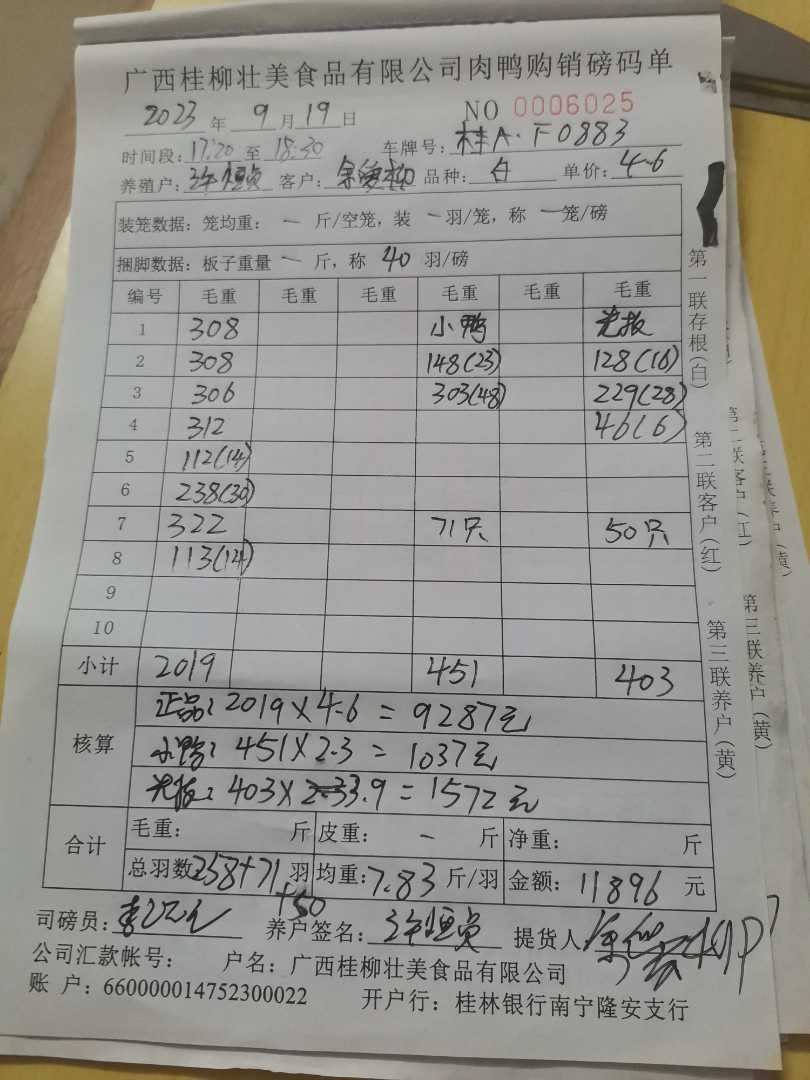 广西桂柳壮美食品有限公司肉鸭购销磅码单
2023年9月19日 NO 0006025
时间段:17:20至18:30 车牌号:桂A·F0883
养殖户:许恒贞 客户: 品种:白 单价:4.6
装笼数据:笼均重:一斤/空笼,装一羽/笼,称一笼/磅
捆脚数据:板子重量一斤,称40羽/磅
编号 毛重 毛重 毛重 毛重 毛重 毛重
1 308 小鸭 光板
2 308 148(23) 128(16)
3 306 303(48) 229(28)
4 312 46(6)
5 112(14)
6 238(30)
7 322 71只 50只
8 113(14)
9
10
小计 2019 451 403
核算
正品:2019×4.6=9287元
小鸭:451×2.3=1037元
光板:403×3.9=1572元
合计
毛重: 斤 皮重:一斤 净重: 斤
总羽数:258+71+50羽 均重:7.83斤/羽 金额:11896元
司磅员: 养户签名:许恒贞 提货人
公司汇款帐号: 户名:广西桂柳壮美食品有限公司
账 户:660000014752300022 开户行:桂林银行南宁隆安支行
第一联存根(白)
第二联客户(红)
第三联养户(黄)
第二联客户(红)
第三联养户(黄)